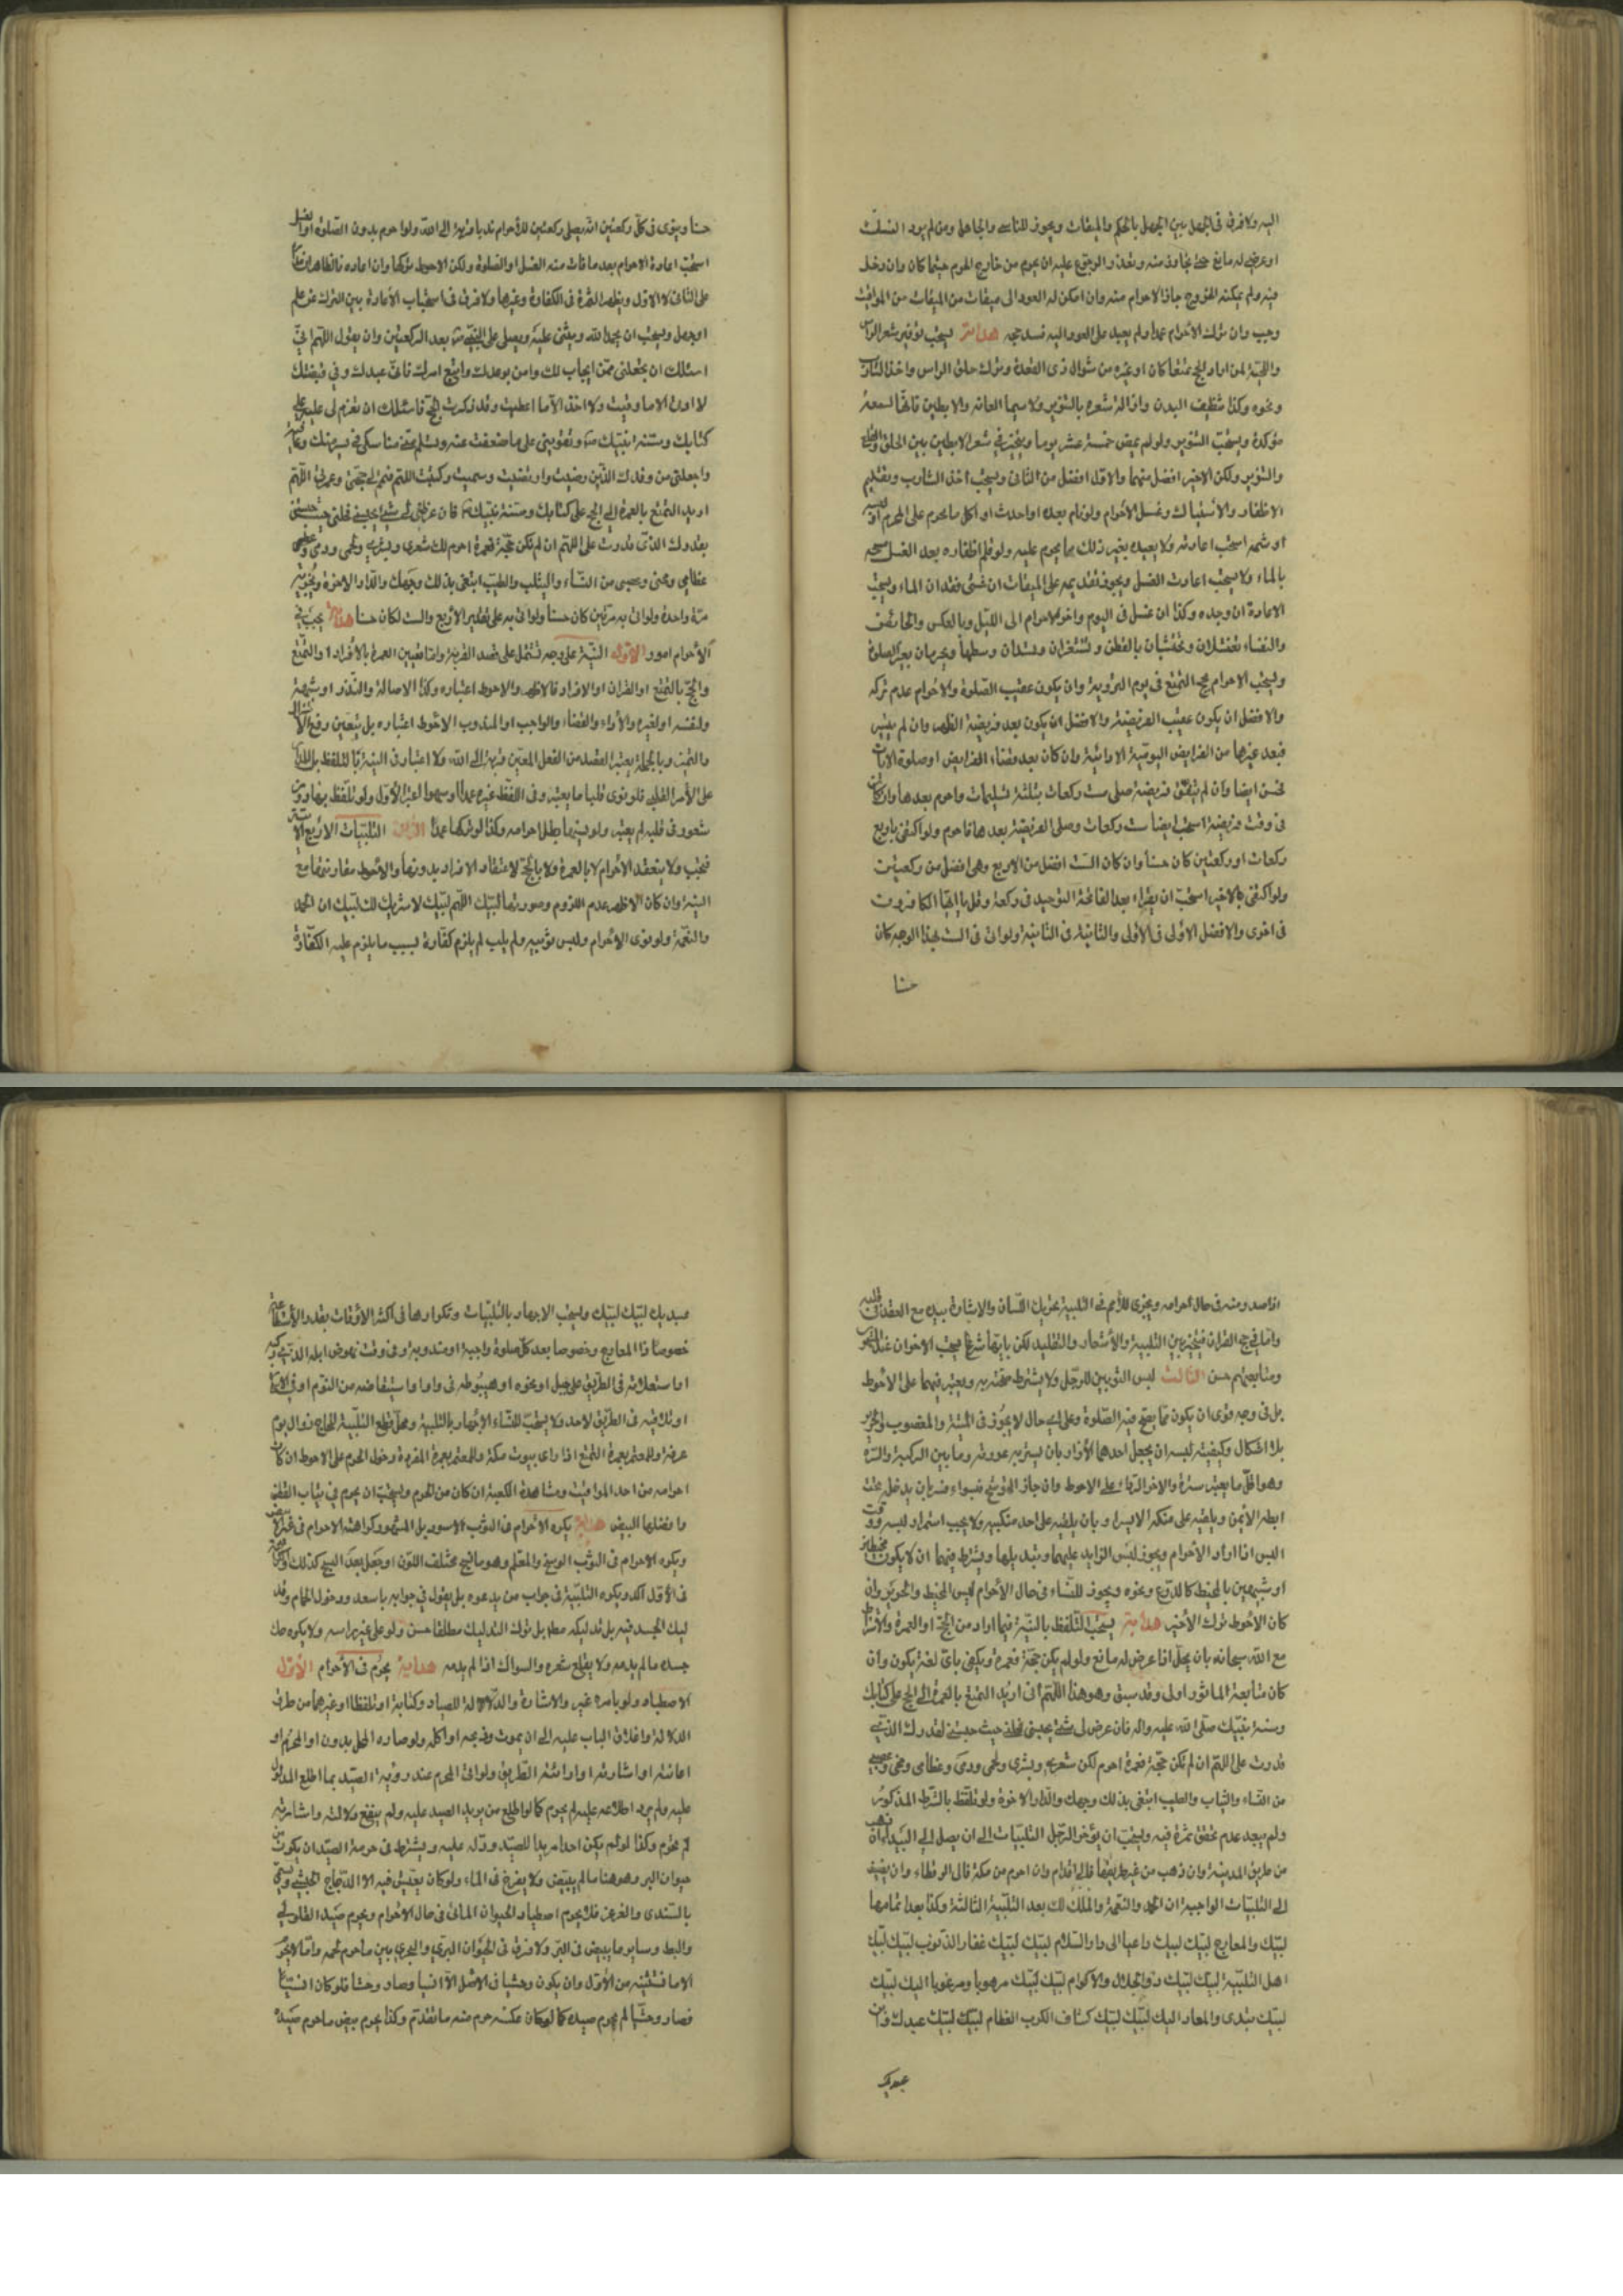 اليه ولا فرق فى الجهل بين الجهل بالحكم والميقات ويجوز للناسى والجاهل ومن لم يرد النسك
او عرض له مانع حتى تجاوز منه وتعذر الرجوع عليه ان يحرم من خارج الحرم حيثما كان وان دخل
فيه ولم يمكنه الخروج جاز الاحرام منه وان امكن له العود الى ميقات من الميقات من المواقيت
وجب وان ترك الاحرام عمدا ولم يعد على العود اليه فسد حجه هداية يستحب توفير شعر الراس
واللحية لمن اراد الحج تمتعا كان او غيره من شوال ذى القعدة وترك حلق الراس واخذ الشارب
ونحوه وكذا تنظيف البدن وازالة شعره بالتنوير ولا سيما العانة والابطين فانها لسنة
مؤكدة ويستحب التنوير ولو لم يمض خمسة عشر يوما ويتخير في شعر الابطين بين الحلق والنتف
والتنوير ولكن الاخير افضل منهما والاول افضل من الثانى ويستحب اخذ الشارب وتقليم
الاظفار والاستياك وغسل الاحرام ولو نام بعده او احدث او اكل ما يحرم على المحرم او لبسه
او شمه استحب اعادته ولا يعيده بغير ذلك مما يحرم عليه ولو قلم اظفاره بعد الغسل مسحه
بالماء ولا يستحب اعادت الغسل ويجوز تقديمه على الميقات ان خشى فقدان الماء ويستحب
الاعادة ان وجده وكذا ان غسل فى اليوم واخر الاحرام الى الليل وبالعكس والحائض
والنفساء تغتسلان وتحتشيان بالقطن وتستثفران وتشدان وسطهما وتحرمان بغير الصلوة
ويستحب الاحرام بحج التمتع فى يوم التروية وان يكون عقيب الصلوة والاحرام عدم تركه
والافضل ان يكون عقيب الفريضة والافضل ان يكون بعد فريضة الظهر وان لم يتيسر
فبعد غيرها من الفرايض اليومية الادائية وان كان بعد قضاء الفرايض او صلوة الايات
تحسن ايضا وان لم يتفق فريضة صلى ست ركعات بثلثة تسليمات واحرم بعدها وان كان
فى وقت فريضة استحب ايضا ست ركعات وصلى الفريضة بعدها فاحرم ولو اكتفى باربع
ركعات او ركعتين كان حسنا وان كان الست افضل من الاربع وهى افضل من ركعتين
ولو اكتفى بالاخير استحب ان يقرء بعد الفاتحة التوحيد فى ركعة وقل يا ايها الكافرون
فى اخرى والافضل الاولى فى الاولى والثانية فى الثانية ولو اتى فى الست بهذا الوجه كان
حسنا
حسنا وينوى فى كل ركعتين انه يصلى ركعتين للاحرام ندبا قربة الى الله ولو احرم بدون الصلوة او الغسل
استحب اعادة الاحرام بعد ما فات منه الغسل او الصلوة ولكن الاحوط تركها وان اعاده فالظاهر
على الثانى لا الاول ويظهر الثمرة فى الكفارة وغيرها ولا فرق فى استحباب الاعادة بين الترك عن علم
او جهل ويستحب ان يحمد الله ويثنى عليه ويصلى على النبى بعد الركعتين وان يقول اللهم انى
اسئلك ان تجعلنى ممن استجاب لك وامن بوعدك واتبع امرك فانى عبدك وفى قبضتك
لا اوقى الا ما وقيت ولا اخذ الا ما اعطيت وقد ذكرت الحج فاسئلك ان تعزم لى عليه على
كتابك وسنة نبيك وتقوينى على ما ضعفت عنه وتسلم منى مناسكى فى يسر منك وعافية
واجعلنى من وفدك الذين رضيت وارتضيت وسميت وكتبت اللهم فتمم لى حجى وعمرتى اللهم
اريد التمتع بالعمرة الى الحج على كتابك وسنة نبيك فان عرض لى شئ يحبسنى فحلنى حيث حبستنى
بقدرك الذى قدرت على اللهم ان لم تكن حجة فعمرة احرم لك شعرى وبشرى ولحمى ودمى و
عظامى ومخى وعصبى من النساء والثياب والطيب ابتغى بذلك وجهك والدار الاخرة ويجزيه
مرة واحدة ولو اتى به مرتين كان حسنا ولو اتى به على تقدير الاربع والست لكان حسنا هداية يجب فى
الاحرام امور الاول النية على وجه تشتمل على قصد القربة واما تعيين العمرة بالافراد والتمتع
والحج بالتمتع او القران او الافراد فالاظهر والاحوط اعتباره وكذا الاصالة والنذر او شبهه
ولنفسه او لغيره والاداء والقضاء والواجب او المندوب الاحوط اعتباره بل يتعين رفع
والتميز وبالجملة يعتبر القصد من الفعل المعين قربة الى الله ولا اعتبار فى النية بالتلفظ بل المدار
على الامر القلبى فلو نوى قلبا ما يعتبر وفى اللفظ غيره عمدا او سهوا اعتبر الاول ولو تلفظ بها دون
شعور فى قلبه لم يعتبر ولو نسيها بطل احرامه وكذا لو تركها عمدا الثانى التلبيات الاربع
فتجب ولا ينعقد الاحرام لا بالعمرة ولا بالحج لا متعة ولا افراد بدونها والاحوط مقارنتها مع
النية وان كان الاظهر عدم اللزوم وصورتها لبيك اللهم لبيك لا شريك لك لبيك ان الحمد
والنعمة ولو نوى الاحرام ولبس ثوبيه ولم يلب لم يلزم كفارة بسبب ما يلزم عليه الكفارة
اذا صدر منه فى حال احرامه ويجزى للاصم فى التلبية تحريك اللسان والاشارة بيده مع العقد فى قلبه
واما فى حج القران فيتخير بين التلبية والاشعار والتقليد لكن بايها شرع يستحب الاخران
ومتابعتهم حسن الثالث لبس الثوبين للرجل ولا يشترط صحته به ويعتبر فيهما على الاحوط
بل فى وجه قوى ان يكون مما يصح فيه الصلوة وعلى اى حال لا يجوز فى الميتة والمغصوب والحرير
بلا اشكال وكيفية لبسه ان يجعل احدهما الازار بان يستر به عورته وما بين الركبة والسرة
وهو اقل ما يعتبر سترة والاخر الرداء على الاحوط وان جاز التوشح فسواء فيه بان يدخله تحت
ابطه الايمن ويلقيه على منكبه الايسر او بان يلقيه على احد منكبيه ولا يجب استمرار لبسه ووقت
اللبس اذا اراد الاحرام ويجوز لبس الزايد عليهما وتبديلها ويشترط فيهما ان لا يكون مخيطا
او شبيهين بالمخيط كالدرع ونحوه ويجوز للنساء فى حال الاحرام لبس المخيط والحرير وان
كان الاحوط ترك الاخير هداية يستحب التلفظ بالنية فيما اراد من الحج او العمرة والاشتراط
مع الله سبحانه بان يحل اذا عرض له مانع ولو لم يكن حجة فعمرة ويكفى باى لغة يكون وان
كان متابعة الماثور اولى وقد سبق وهو هذا اللهم انى اريد التمتع بالعمرة الى الحج على كتابك
وسنة نبيك صلى الله عليه واله فان عرض لى شئ يحبسنى فحلنى حيث حبستنى لقدرك الذى
قدرت على اللهم ان لم تكن حجة فعمرة احرم لك شعرى وبشرى ولحمى ودمى وعظامى ومخى وعصبى
من النساء والثياب والطيب ابتغى بذلك وجهك والدار الاخرة ولو تلفظ بالشرط المذكور
ولم يبعد عدم تحقق ثمرة فيه ويستحب ان يؤخر الرجل التلبيات الى ان يصل الى البيداء ان ذهب
من طريق المدينة وان ذهب من غير طريقها فالى اقدام وان احرم من مكة فالى الرقطاء وان يضيف
الى التلبيات الواجبة ان الحمد والنعمة والملك لك بعد التلبية الثالثة وكذا بعد تمامها
لبيك ذا المعارج لبيك لبيك داعيا الى دار السلام لبيك لبيك غفار الذنوب لبيك لبيك
اهل التلبية لبيك لبيك ذو الجلال والاكرام لبيك لبيك مرهوبا ومرغوبا اليك لبيك
لبيك تبدى والمعاد اليك لبيك لبيك كشاف الكرب العظام لبيك لبيك عبدك وابن
عبديك
عبديك لبيك لبيك ويستحب الاجهار بالتلبيات وتكرارها فى اكثر الاوقات بقدر الاستطاعة
خصوصا ذا المعارج وخصوصا بعد كل صلوة واجبة او مندوبة وفى وقت نهوض ابله الذى ركبه
او استعلائه فى الطريق على جبل او نحوه او هبوطه فى واد او استيقاضه من النوم او فى الاسحار
او تلاقيه فى الطريق لاحد ولا يستحب للنساء الاجهار بالتلبية ومحل قطع التلبية للحاج زوال يوم
عرفة وللمعتمر بعمرة التمتع اذا راى بيوت مكة وللمعتمر بعمرة المفردة دخول الحرم على الاحوط ان كان
احرامه من احد المواقيت ومشاهدة الكعبة ان كان من الحرم ويستحب ان يحرم فى ثياب القطن
وافضلها البيض هداية يكره الاحرام فى الثوب الاسود بل المشهور كراهته الاحرام فى غير الابيض
ويكره الاحرام فى الثوب الوسخ والمعلم وهو ما نسج مختلف اللون او جعل بعد النسج كذلك
فى الاول اكد ويكره التلبية فى جواب من يدعوه بل يقول فى جوابه يا سعد ودخول الحمام وقد
ليك الجسد فيه بل تدليكه مطلقا بل ترك التدليك مطلقا حسن ولو على غير راسه ولا يكره حك
جسده ما لم يدمه ولا يقلع شعره والسواك اذا لم يدمه هداية يحرم فى الاحرام الاول
الاصطياد ولو بامره غيره والاشارة والدلالة للصياد وكتابة او تلفظا او غيرهما من طرق
الدلالة واغلاق الباب عليه الى ان يموت وذبحه او اكله ولو صاده المحل بدون او المحرم او
اعانته او اشارته او ارائته الطريق ولو اتى المحرم عند رؤية الصيد بما اطلع المدلول
عليه ولم يرد اطلاعه عليه لم يحرم كما لو اطلع من يريد الصيد عليه ولم ينفع دلالته واشارته
لم يحرم وكذا لو لم يكن احد مريدا للصيد ودله عليه ويشترط فى حرمة الصيد ان يكون من
حيوان البر وهو هنا ما لم يبيض ولا يفرخ فى الماء ولو كان يعيش فيه الا الدجاج الحبشى ويسمى
بالسندى والغرغر فلا يحرم اصطياد الحيوان المائى فى حال الاحرام ويحرم صيد الطاوس
والبط وساير ما يبيض فى البر ولا فرق فى الحيوان البرى والبحرى بين ما حرم لحمه وما لا يحرم
الا ما نستثنيه من الاول وان يكون وحشيا فى الاصل الا انسيا وصار وحشا فلو كان انسيا
فصار وحشيا لم يحرم صيده كما لو كان عكسه حرم منه ما تقدم وكذا يحرم بيض ما حرم صيده